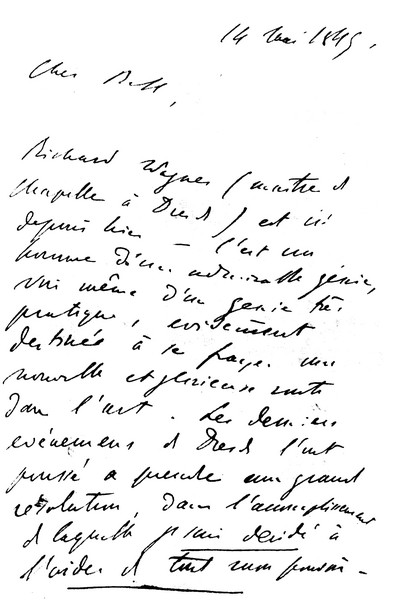 14 Mai 1849,
Cher Bell,
Richard Wagner (maitre d
chapelle à Dresd) est ici
depuis hier – C'est un
homme d'un admirable génie,
voi même d'un genie très
pratique, evidement
destinée à se frayer une
nouvelle et glorieuse route
dans l'art. Les derniers
evénemens d Dresd l'ont
poussé a prendre une grand
resolution, dans l'accomplissement
d laquelle je suis decidé à
l'aider d tout mon pouvoir –